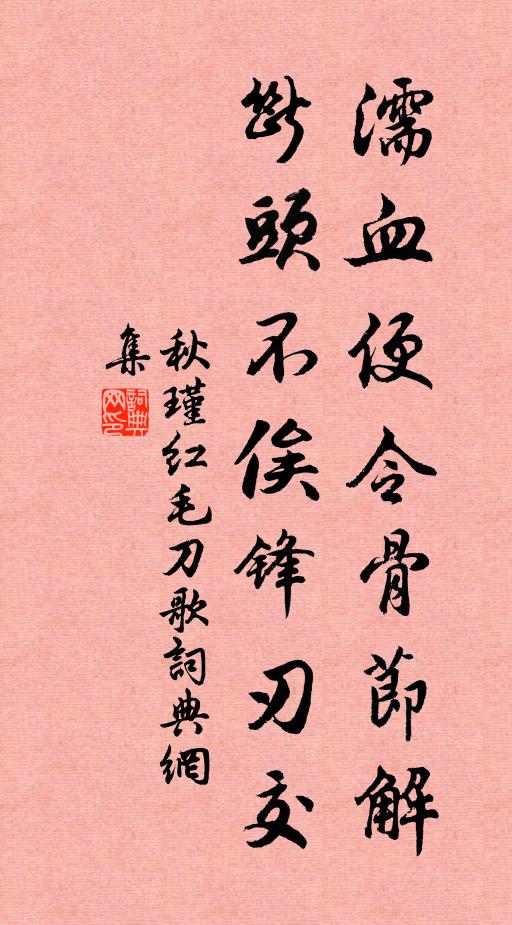 濡血便令骨節解
斷頭不俟鋒刃交
秋瑾红毛刀歌詞典網
集
詞典
网印